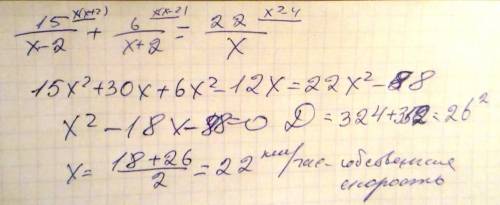 15^{x(x+2)}/(x-2) + 6^{x(x-2)}/(x+2) = 22^{x²-4}/x
15x²+30x+6x²-12x=22x²-88
x²-18x-88=0 D=324+352=26²
x=(18+26)/2=22 км/час-собственная
скорость